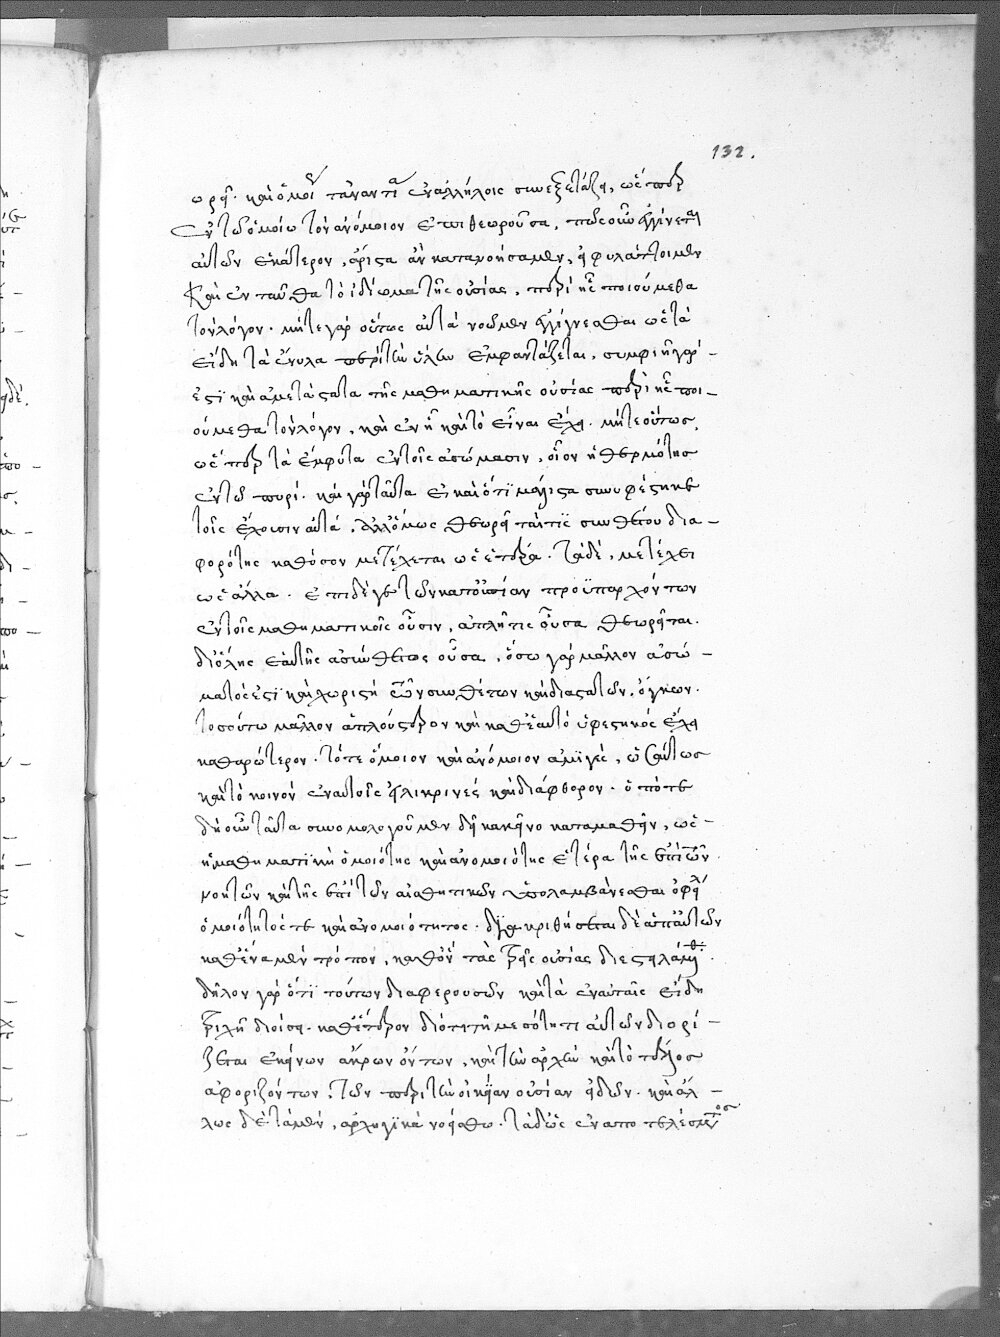 132.
ωρεῖ. καὶ ὁμοῦ τἀναντία ἐν ἀλλήλοις συνεξετάζει, ὥσπερ
ἐν τῷ ὁμοίῳ τὸν ἀνόμοιον ἐπιθεωροῦσα, πῶς οὖν ἐγγίνεται
αὐτῶν ἑκάτερον, ἄριστα ἂν κατανοήσαμεν, εἰ φυλάττοιμεν
καὶ ἐνταῦθα τὸ ἰδίωμα τῆς οὐσίας, περὶ ἧς ποιούμεθα
τὸν λόγον. μήτε γὰρ οὕτως αὐτὰ νοῶμεν ἐγγίγνεσθαι ὡς τὰ
εἴδη τὰ ἔνυλα περὶ τὴν ὕλην ἐμφαντάζεται.
ἐστὶ καὶ ἀμετάστατα τῆς μαθηματικῆς οὐσίας περὶ ἧς ποι-
ούμεθα τὸν λόγον, καὶ ἐν ᾗ καὶ τὸ εἶναι ἔχει. μήτε οὕτως
ὥσπερ τὰ ἔμφυτα ἐν τοῖς ἀσώμασιν, οἷον ἡ θερμότης
ἐν τῷ πυρί. καὶ γὰρ ταῦτα εἰ καὶ ὅτι μάλιστα συνυφέστηκε
τοῖς ἔχουσιν αὐτά, ἀλλ' ὅμως θεωρεῖταί τις συνθέτου δια-
φορότης καθόσον μετέχεται ὡς ἕτερα. τὰ δὲ, μετέχει
ὡς ἄλλα. ἐπὶ δέ γε τῶν κατ' οὐσίαν προϋπαρχόντων
ἐν τοῖς μαθηματικοῖς οὖσιν, ἁπλῆ τις οὖσα θεωρεῖται.
δι' ὅλης ἑαυτῆς ἀσύνθετος οὖσα, ὅσῳ γὰρ μᾶλλον ἀσώ-
ματός ἐστι καὶ χωριστὴ τῶν συνθέτων καὶ διαστατῶν ὄγκων.
τοσούτῳ μᾶλλον ἁπλούστερον καὶ καθ' ἑαυτὸ ὑφεστηκὸς ἔχει
καθαρώτερον. τό τε ὅμοιον καὶ ἀνόμοιον ἀμιγὲς, ὡσαύτως
καὶ τὸ κοινὸν ἐν αὐτοῖς εἰλικρινές καὶ διάφθορον. ὁπότε
δὴ οὖν ταῦτα συνομολογοῦμεν δεῖ κἀκεῖνο καταμαθεῖν, ὡς
ἡ μαθηματικὴ ὁμοιότης καὶ ἀνομοιότης ἑτέρα τῆς ἐπὶ τῶν
νοητῶν καὶ τῆς ἐπὶ τῶν αἰσθητικῶν ὑπολαμβάνεσθαι ὀφείλει
ὁμοιότητός τε καὶ ἀνομοιότητος. διακριθήσεται δὲ ἀπ' αὐτῶν
καθ' ἕνα μὲν τρόπον, καθ' ὃν τὰς τρεῖς οὐσίας διεστειλάμεθα.
δῆλον γὰρ ὅτι τούτων διαφερουσῶν καὶ τὰ ἐν αὐταῖς εἴδη
τριχῇ διοίσει. καθ' ἕτερον διότι τῇ μεσότητι αὐτῶν διορί-
ζεται ἐκείνων ἄκρων ὄντων, καὶ τὴν ἀρχὴν καὶ τὸ τέλος
ἀφοριζόντων. τῶν περὶ τὴν οἰκείαν οὐσίαν εἰδῶν. καὶ ἄλ-
λως δὲ τὰ μὲν, ἀρχηγικὰ νοείσθω. τὰ δ' ὡς ἐν ἀποτελέσματος